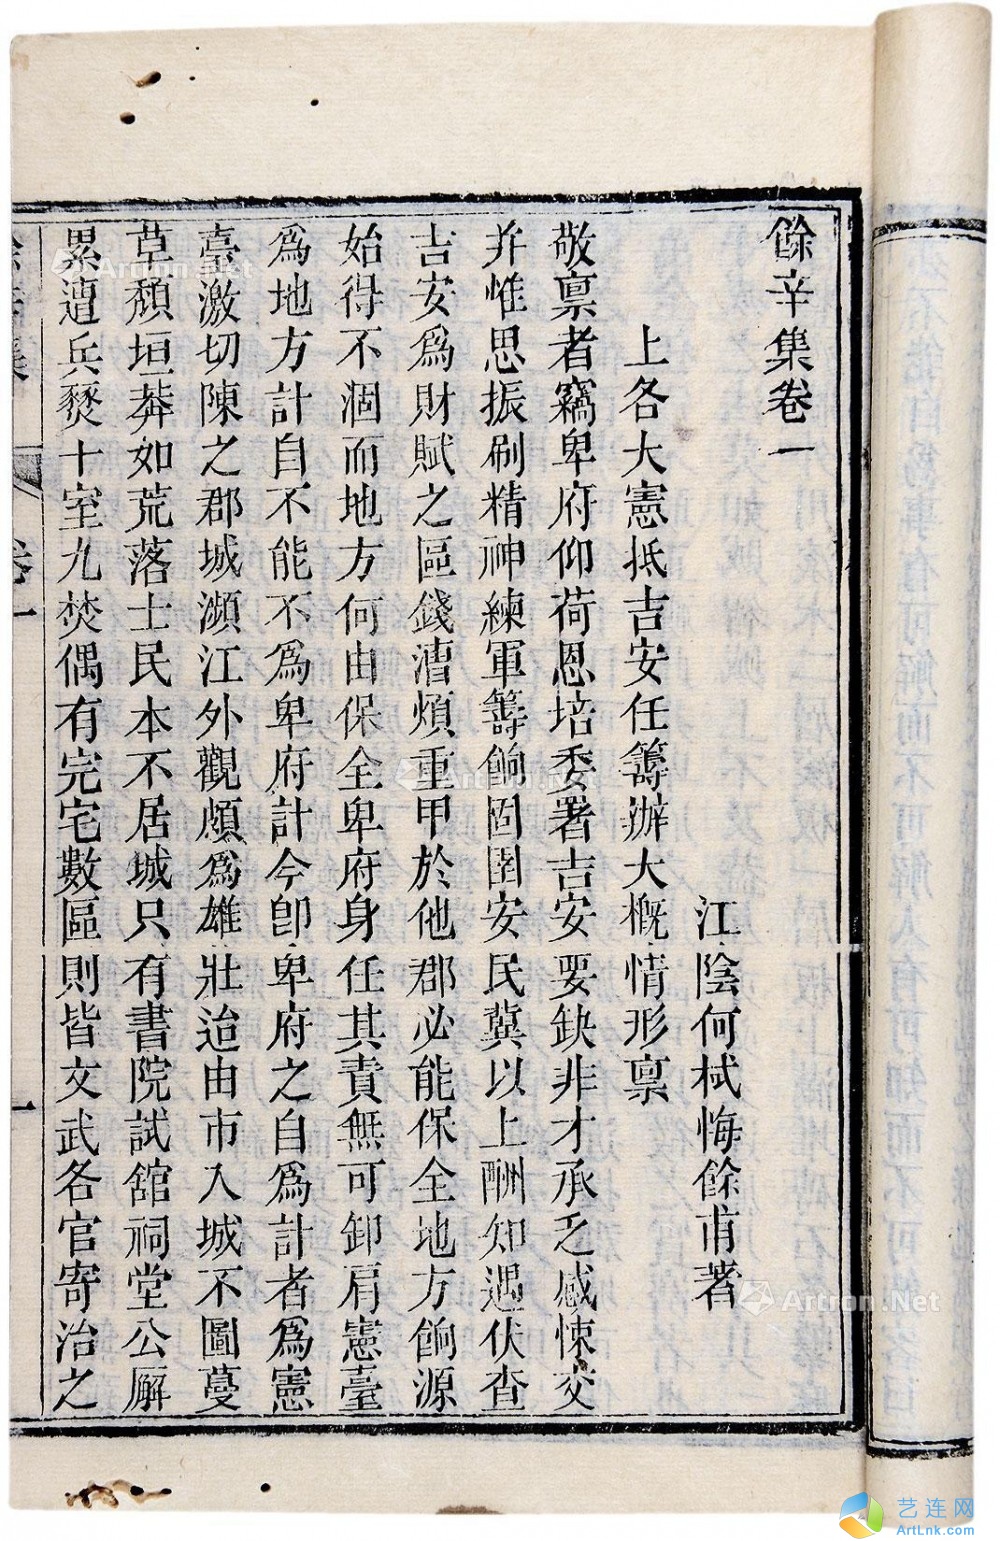 餘辛集卷一
江陰何栻悔餘甫著
上各大憲抵吉安任籌辦大概情形稟
敬稟者竊卑府仰荷恩培委署吉安要缺非才承乏感悚交
并惟思振刷精神練軍籌餉固圉安民冀以上酬知遇伏查
吉安爲財賦之區錢漕煩重甲於他郡必能保全地方餉源
始得不涸而地方何由保全卑府身任其責無可卸肩憲臺
爲地方計自不能不爲卑府計今卽卑府之自爲計者爲憲
臺激切陳之郡城瀕江外觀頗爲雄壯迨由市入城不圖蔓
草頹垣莽如荒落士民本不居城只有書院試舘祠堂公廨
累遭兵燹十室九焚偶有完宅數區則皆文武各官寄治之
卷一
一
Artron.Net
Artron.Net
Artron.Net
艺连网
ArtLnk.com